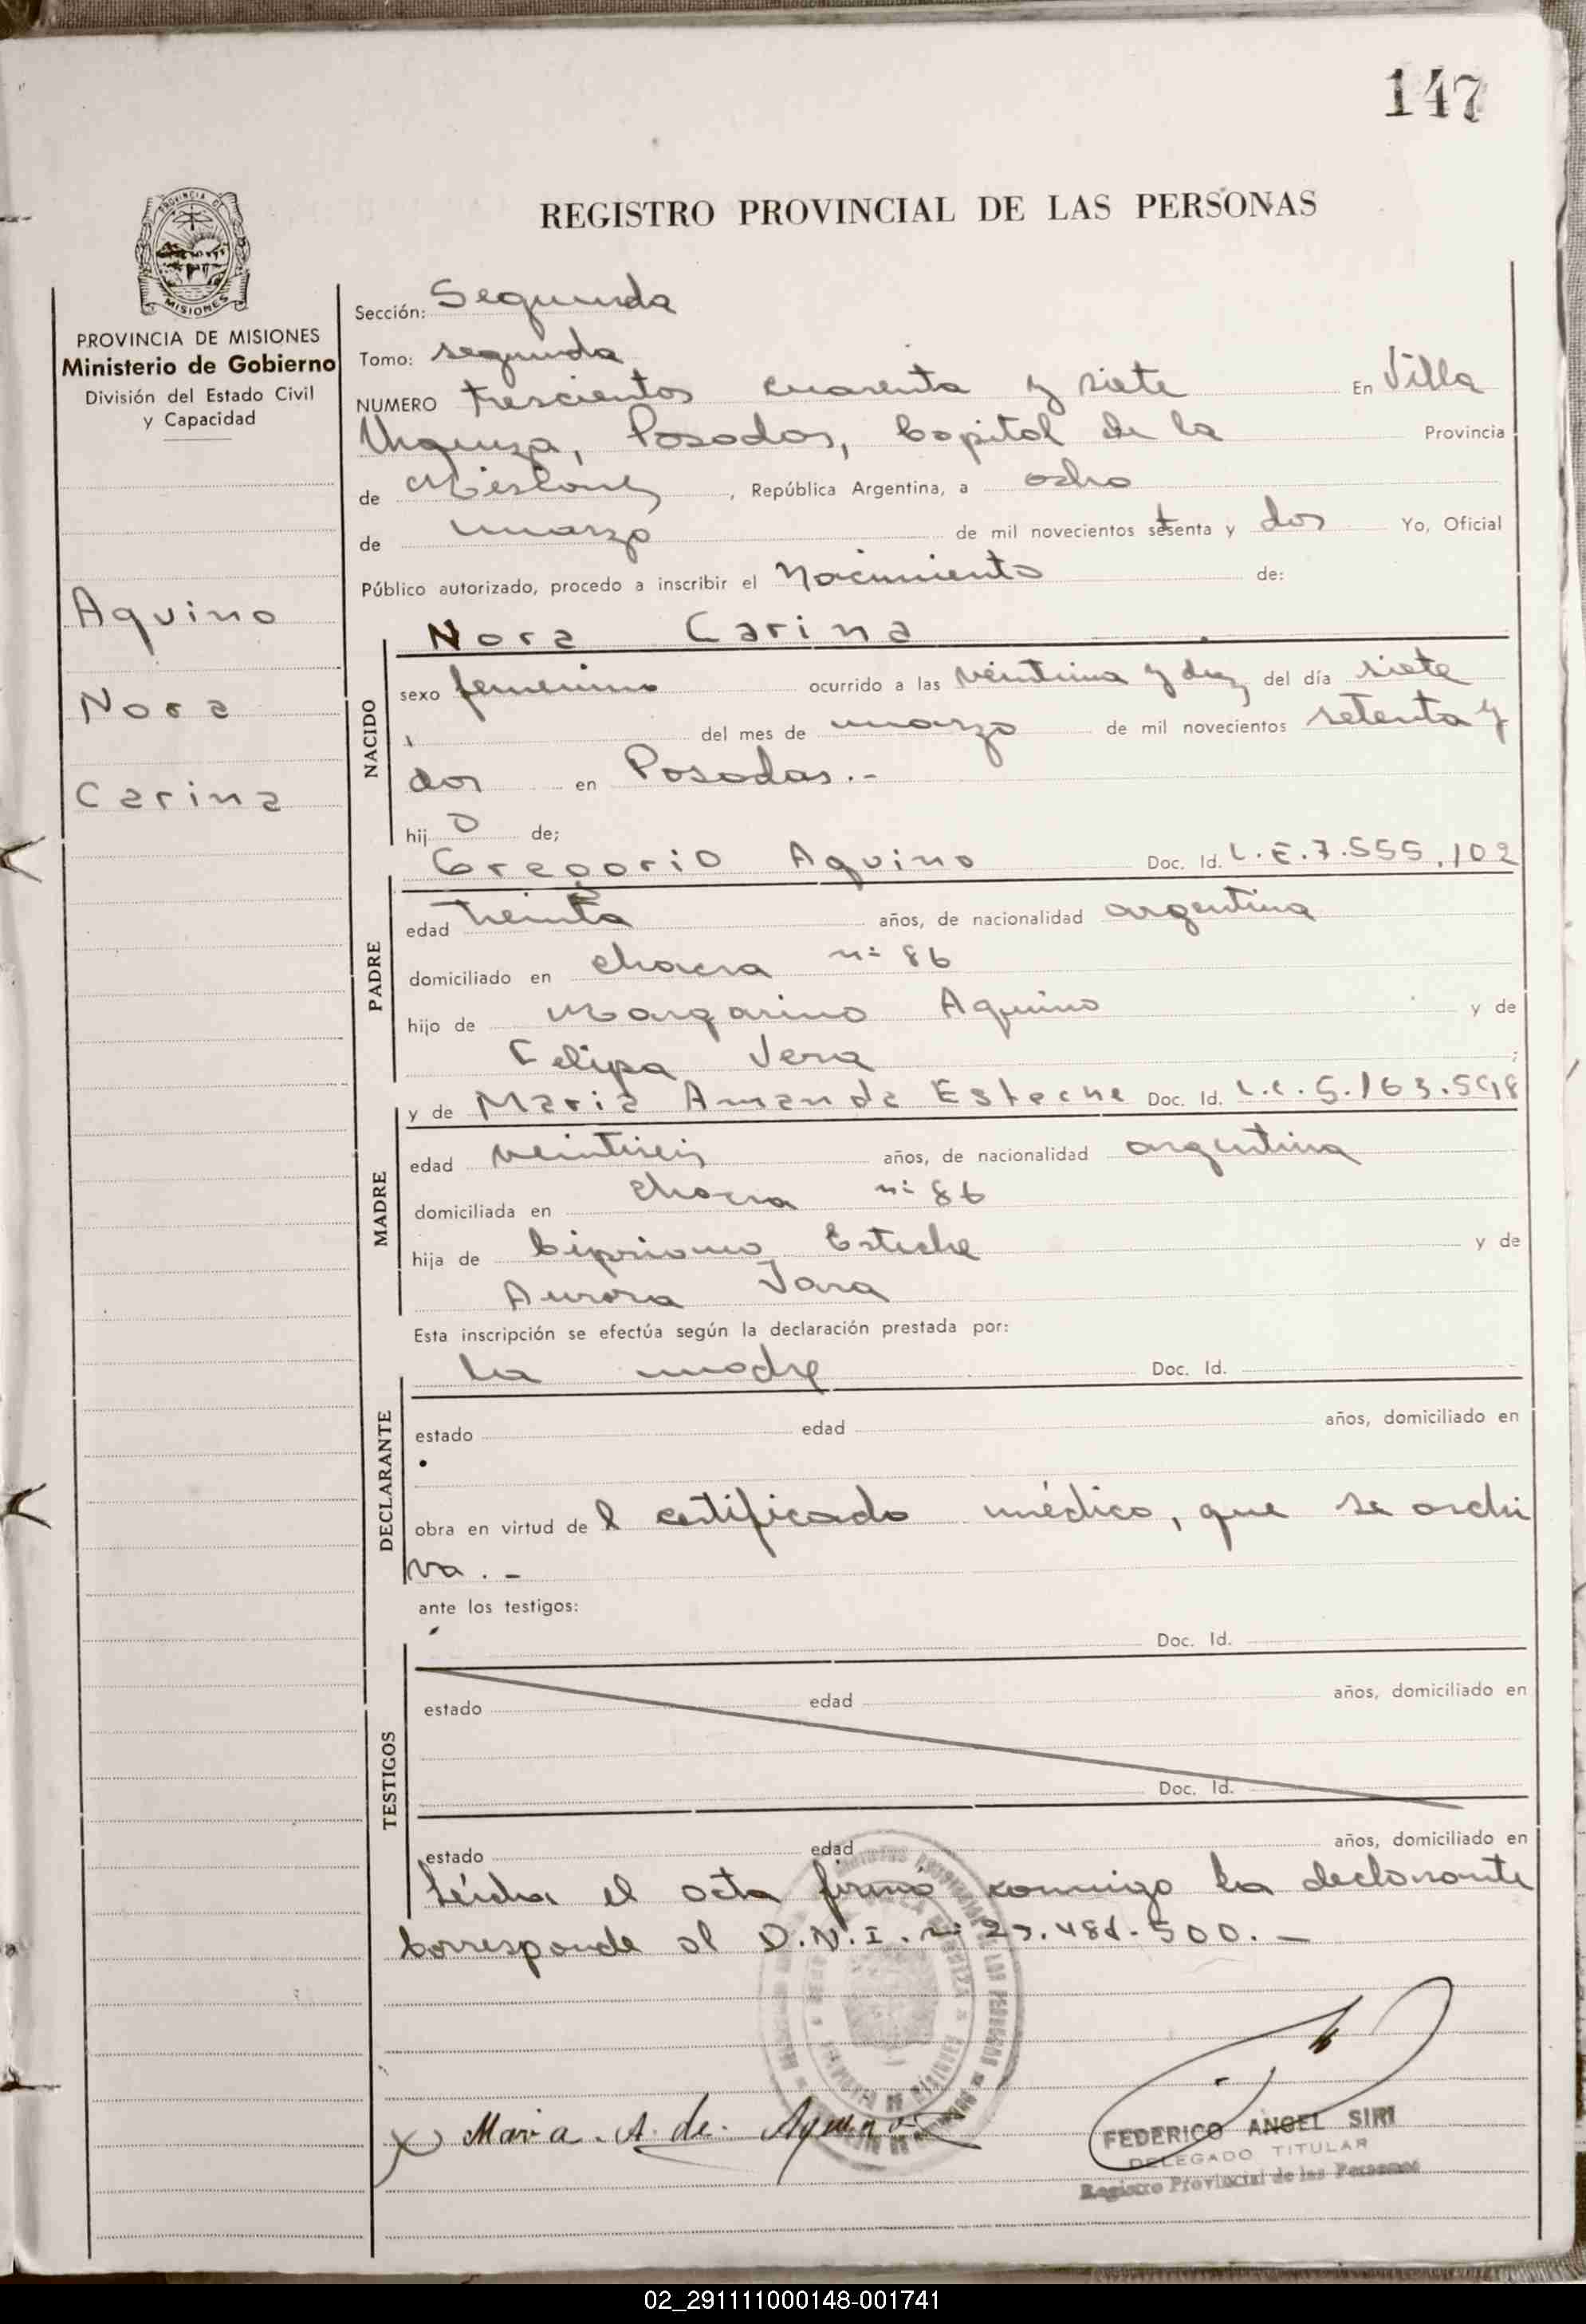 147
REGISTRO PROVINCIAL DE LAS PERSONAS
PROVINCIA DE MISIONES
Ministerio de Gobierno
División del Estado Civil
y Capacidad
Aquino
Nora
Carina
Sección: Segunda
Tomo: segunda
NUMERO trescientos cuarenta y siete En Villa
Urquiza, Posadas, Capital de la Provincia
de Misiones, República Argentina, a ocho
de marzo de mil novecientos setenta y dos Yo, Oficial
Público autorizado, procedo a inscribir el Nacimiento de:
NACIDO
Nora Carina
sexo femenino ocurrido a las veintiuna y diez del día siete
del mes de marzo de mil novecientos setenta y
dos en Posadas.-
hij de;
PADRE
Gregorio Aquino Doc. Id. L.E.7.555.102
edad treinta años, de nacionalidad argentina
domiciliado en chacra nº 86
hijo de Margarino Aquino y de
Felipa Vera ;
MADRE
y de Maria Amanda Esteche Doc. Id. L.C.5.163.598
edad veintiseis años, de nacionalidad argentina
domiciliada en chacra nº 86
hija de Cipriano Esteche y de
Aurora Jara
Esta inscripción se efectúa según la declaración prestada por:
DECLARANTE
La madre Doc. Id.
estado edad años, domiciliado en
obra en virtud del certificado médico, que se archi
va.-
ante los testigos:
TESTIGOS
Doc. Id.
estado edad años, domiciliado en
Doc. Id.
estado edad años, domiciliado en
Leída el acta firmó conmigo la declarante
Corresponde al D.N.I. nº .500.-
Maria. A. de. Aquino
FEDERICO ANGEL SIRI
DELEGADO TITULAR
Registro Provincial de las Personas
02_291111000148-001741